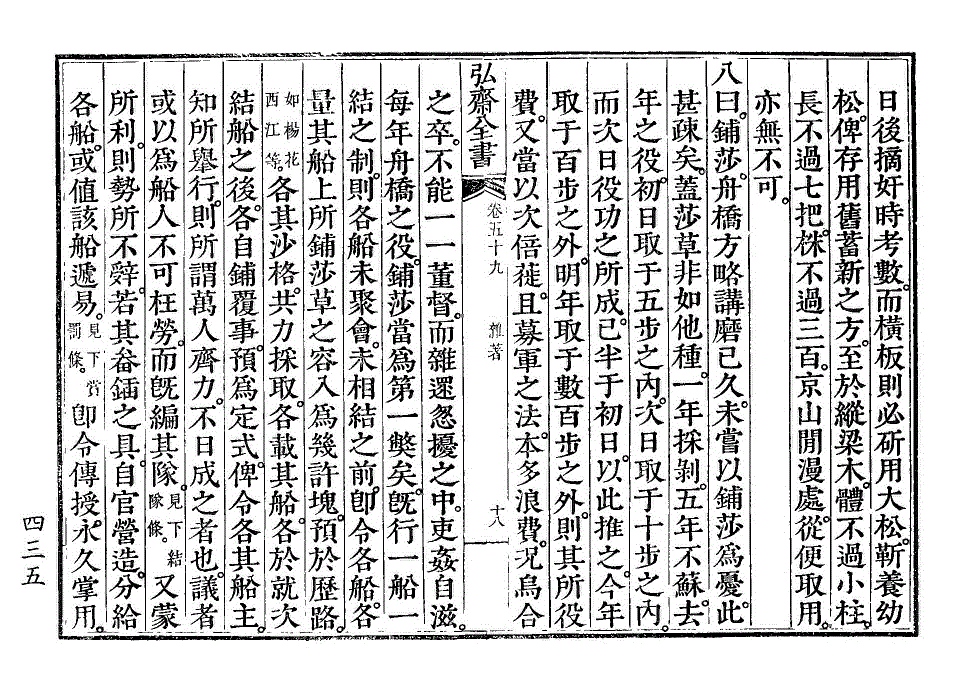 日後摘奸時考數。而橫板則必斫用大松。靳養幼
松。俾存用舊蓄新之方。至於縱梁木體不過小柱。
長不過七把。株不過三百。京山閒漫處。從便取用。
亦無不可。
八曰。鋪莎。舟橋方略講磨已久。未嘗以鋪莎爲憂。此
甚疎矣。蓋莎草非如他種。一年採剝。五年不蘇。去
年之役。初日取于五步之內。次日取于十步之內。
而次日役功之所成。已半于初日。以此推之。今年
取于百步之外。明年取于數百步之外。則其所役
費。又當以次倍蓰。且募軍之法。本多浪費。况烏合
弘齋全書 卷五十九 雜著 十八
之卒。不能一一董督。而雜遝怱擾之中。吏姦自滋。
每年舟橋之役。鋪莎當爲第一獘矣。旣行一船一
結之制。則各船未聚會。未相結之前。卽令各船。各
量其船上所鋪莎草之容入爲幾許塊。預於歷路
如楊花西江等。各其沙格。共力採取。各載其船。各於就次
結船之後。各自鋪覆事。預爲定式。俾令各其船主。
知所擧行。則所謂萬人齊力。不日成之者也。議者
或以爲船人不可枉勞。而旣編其隊。見下結隊條。又蒙
所利。則勢所不辤。若其畚鍤之具。自官營造。分給
各船。或値該船遞易。見下賞罰條。卽令傳授。永久掌用。
四三五